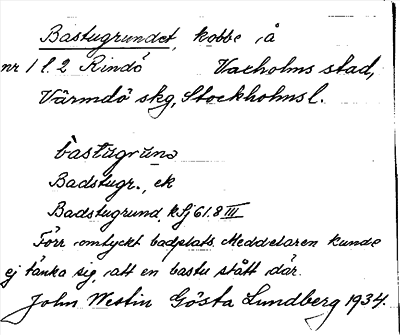 Bastugrundet, kobbe å
nr 1 l. 2 Rindö Vaxholms stad,
Värmdö skg, Stockholms l.
bastugrune
Badstugr., ek
Badstugrund kSj 61.8 III
Förr omtyckt badplats. Meddelaren kunde
ej tänka sig, att en bastu stått där.
John Westin Gösta Lundberg 1934.